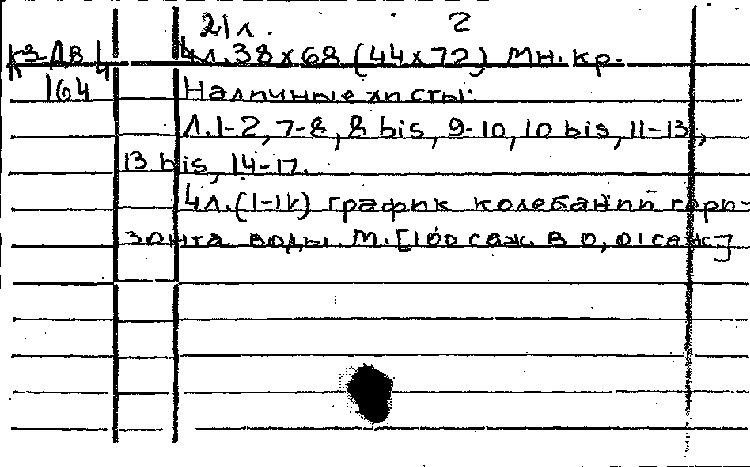 21 л. 2
К3-Дв 4 4л. 38х68 (44х72) мн. кр.
164 Наличные листы:
Л. 1-2, 7-8, 8 bis, 9-10, 10 bis, 11-13,
13 bis, 14-17.
4л. (I-IV) график колебаний гори-
зонта воды. М. [100 саж. в 0,01 саж.]